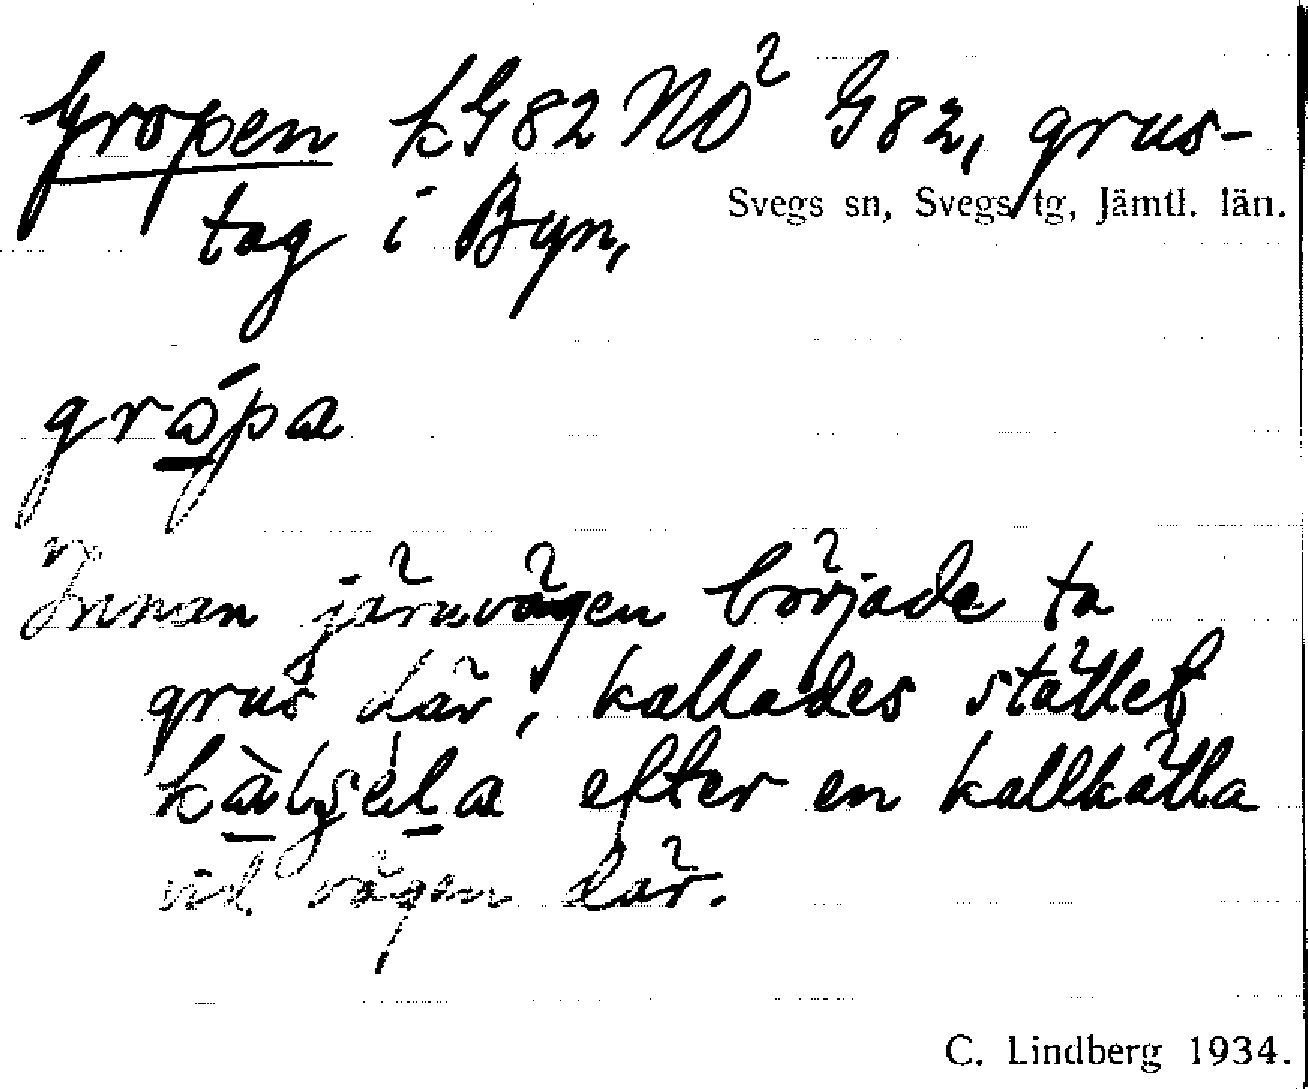 Gropen kG82NO² G82, grus-
Svegs sn, Svegs tg, Jämtl. län.
tag i Byn,
grápa
Innan järnvägen började ta
grus där, kallades stället
efter en kallkälla
vid vägen där.
C. Lindberg 1934.